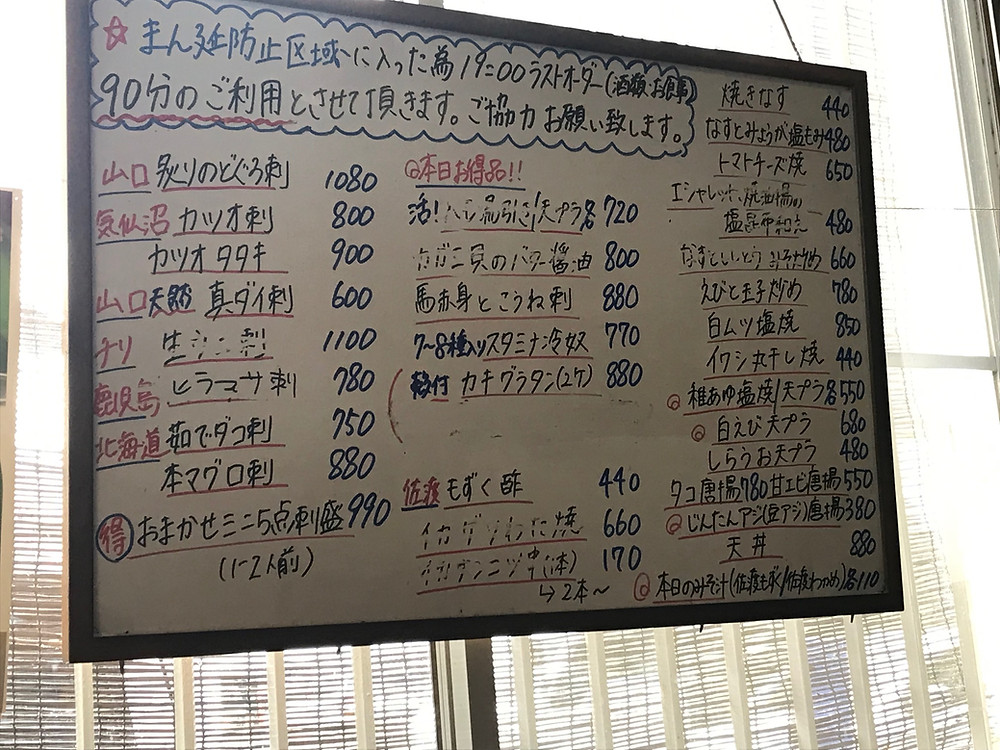 ☆まん延防止区域に入った為19:00ラストオーダー(酒類・お食事)
90分のご利用とさせて頂きます。ご協力お願い致します。
山口 炙りのどぐろ刺 1080
気仙沼 カツオ刺 800
カツオタタキ 900
山口天然 真ダイ刺 600
チリ 生ウニ刺 1100
鹿児島 ヒラマサ刺 780
北海道 茹でダコ刺 750
本マグロ刺 880
得 おまかせミニ5点刺盛 990
(1~2人前)
◎本日お得品!!
活! 刺/天プラ各 720
貝のバター醤油 800
馬赤身とこうね刺 880
7~8種入りスタミナ冷奴 770
殻付 カキグラタン(2ケ) 880
佐渡 もずく酢 440
イカゲソわた焼 660
170
↳2本~
焼きなす 440
なすとみょうが塩もみ 480
トマトチーズ焼 650
エシャレット、焼油揚の
塩昆布和え 480
みそ炒め 660
えびと玉子炒め 780
白ムツ塩焼 850
イワシ丸干し焼 440
◎稚あゆ塩焼/天プラ各550
◎白えび天プラ 680
しらうお天プラ 480
タコ唐揚780 甘エビ唐揚550
◎じんたんアジ(豆アジ)唐揚380
天丼 880
◎本日のみそ汁(佐渡もずく/佐渡わかめ)各110